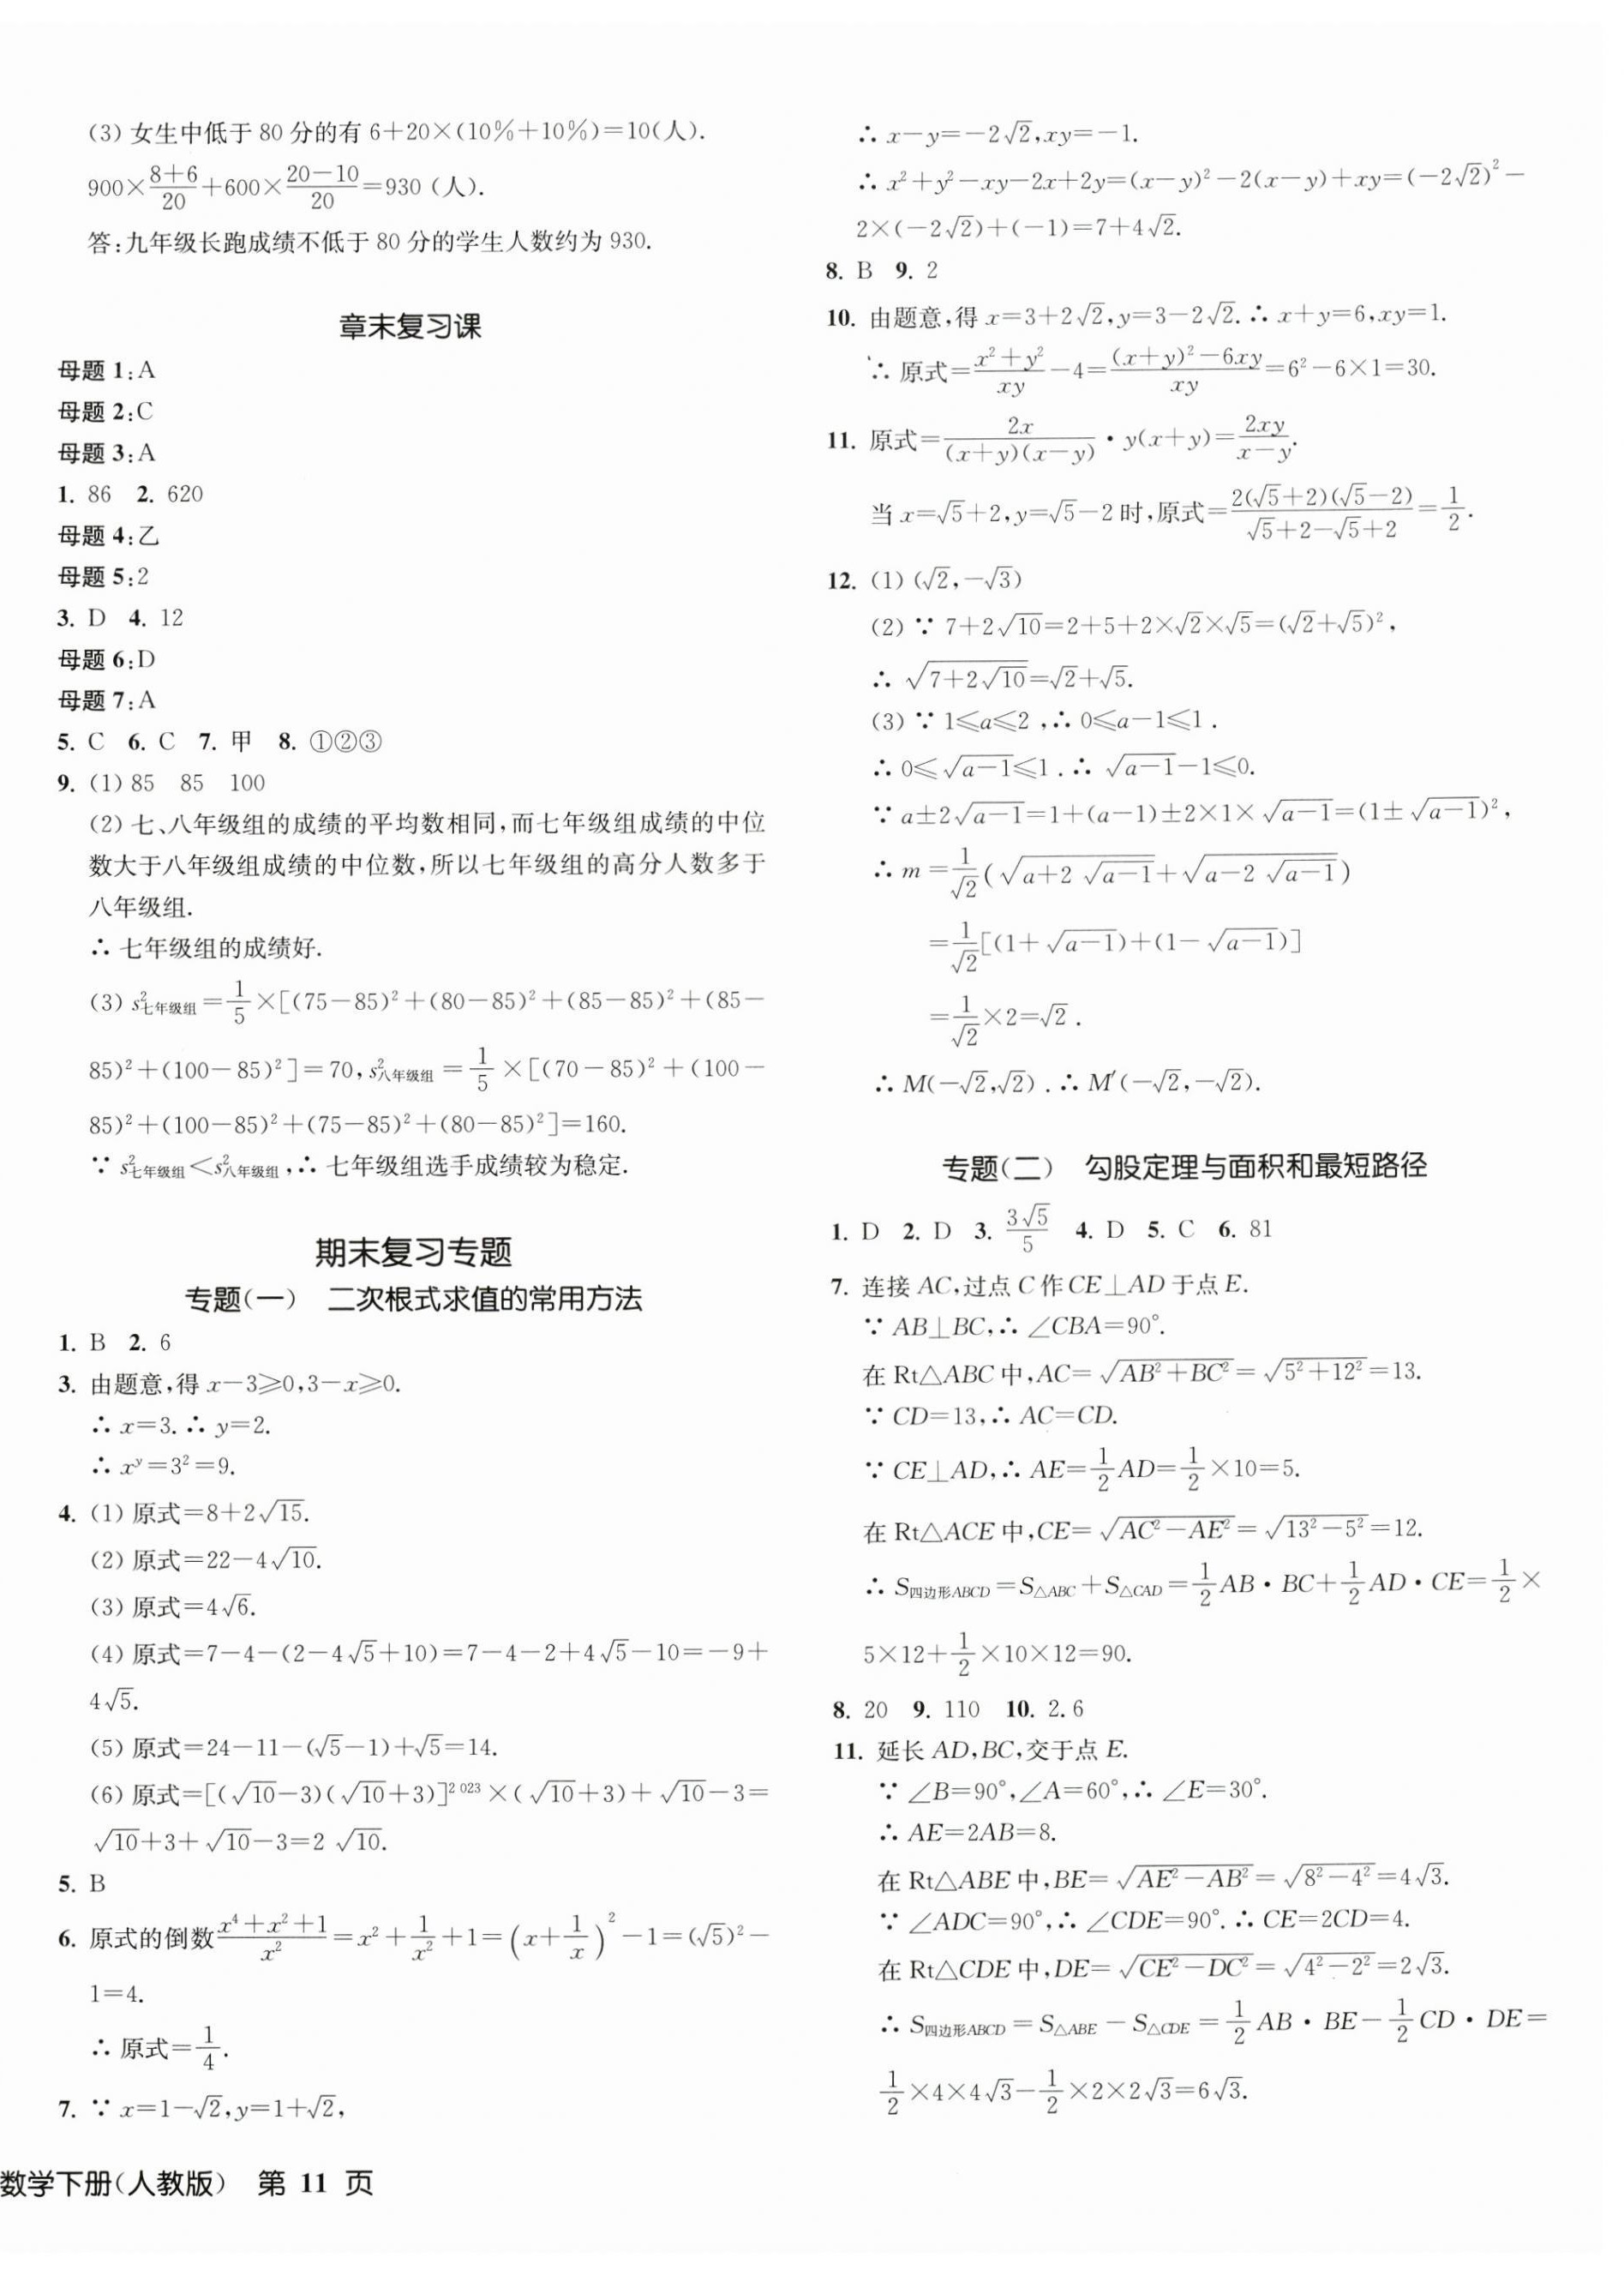 (3) 女生中低于 80 分的有 6+20×(10%+10%)=10(人).
900×\frac{8+6}{20}+600×\frac{20-10}{20}=930 (人).
答:九年级长跑成绩不低于 80 分的学生人数约为 930.
章末复习课
母题 1:A
母题 2:C
母题 3:A
1. 86 2. 620
母题 4:乙
母题 5:2
3. D 4. 12
母题 6:D
母题 7:A
5. C 6. C 7. 甲 8. ①②③
9. (1) 85 85 100
(2) 七、八年级组的成绩的平均数相同,而七年级组成绩的中位
数大于八年级组成绩的中位数,所以七年级组的高分人数多于
八年级组.
∴ 七年级组的成绩好.
(3) s²七年级组=\frac{1}{5}×[(75-85)²+(80-85)²+(85-85)²+(85-
85)²+(100-85)²]=70,s²八年级组=\frac{1}{5}×[(70-85)²+(100-
85)²+(100-85)²+(75-85)²+(80-85)²]=160.
∵ s²七年级组<s²八年级组,∴ 七年级组选手成绩较为稳定.
期末复习专题
专题(一) 二次根式求值的常用方法
1. B 2. 6
3. 由题意,得 x-3⩾0,3-x⩾0.
∴ x=3. ∴ y=2.
∴ x^y=3²=9.
4. (1) 原式=8+2√15.
(2) 原式=22-4√10.
(3) 原式=4√6.
(4) 原式=7-4-(2-4√5+10)=7-4-2+4√5-10=-9+
4√5.
(5) 原式=24-11-(√5-1)+√5=14.
(6) 原式=[(√10-3)(√10+3)]^{2 023}×(√10+3)+√10-3=
√10+3+√10-3=2 √10.
5. B
6. 原式的倒数\frac{x⁴+x²+1}{x²}=x²+\frac{1}{x²}+1=(x+\frac{1}{x})²-1=(√5)²-
1=4.
∴ 原式=\frac{1}{4}.
7. ∵ x=1-√2,y=1+√2,
数学下册(人教版) 第 11 页
∴ x-y=-2√2,xy=-1.
∴ x²+y²-xy-2x+2y=(x-y)²-2(x-y)+xy=(-2√2)²-
2×(-2√2)+(-1)=7+4√2.
8. B 9. 2
10. 由题意,得 x=3+2√2,y=3-2√2. ∴ x+y=6,xy=1.
∴ 原式=\frac{x²+y²}{xy}-4=\frac{(x+y)²-6xy}{xy}=6²-6×1=30.
11. 原式=\frac{2x}{(x+y)(x-y)}·y(x+y)=\frac{2xy}{x-y}.
当 x=√5+2,y=√5-2 时,原式=\frac{2(√5+2)(√5-2)}{√5+2-√5+2}=\frac{1}{2}.
12. (1) (√2,-√3)
(2) ∵ 7+2√10=2+5+2×√2×√5=(√2+√5)²,
∴ \sqrt{7+2√10}=√2+√5.
(3) ∵ 1⩽a⩽2 ,∴ 0⩽a-1⩽1 .
∴ 0⩽\sqrt{a-1}⩽1 . ∴ \sqrt{a-1}-1⩽0.
∵ a±2\sqrt{a-1}=1+(a-1)±2×1×\sqrt{a-1}=(1±\sqrt{a-1})²,
∴ m=\frac{1}{√2}(\sqrt{a+2\sqrt{a-1}}+\sqrt{a-2\sqrt{a-1}})
=\frac{1}{√2}[(1+\sqrt{a-1})+(1-\sqrt{a-1})]
=\frac{1}{√2}×2=√2 .
∴ M(-√2,√2) . ∴ M′(-√2,-√2).
专题(二) 勾股定理与面积和最短路径
1. D 2. D 3. \frac{3√5}{5} 4. D 5. C 6. 81
7. 连接 AC,过点 C 作 CE⊥AD 于点 E.
∵ AB⊥BC,∴ ∠CBA=90°.
在 Rt△ABC 中,AC=\sqrt{AB²+BC²}=\sqrt{5²+12²}=13.
∵ CD=13,∴ AC=CD.
∵ CE⊥AD,∴ AE=\frac{1}{2}AD=\frac{1}{2}×10=5.
在 Rt△ACE 中,CE=\sqrt{AC²-AE²}=\sqrt{13²-5²}=12.
∴ S四边形ABCD=S△ABC+S△CAD=\frac{1}{2}AB·BC+\frac{1}{2}AD·CE=\frac{1}{2}×
5×12+\frac{1}{2}×10×12=90.
8. 20 9. 110 10. 2.6
11. 延长 AD,BC,交于点 E.
∵ ∠B=90°,∠A=60°,∴ ∠E=30°.
∴ AE=2AB=8.
在 Rt△ABE 中,BE=\sqrt{AE²-AB²}=\sqrt{8²-4²}=4√3.
∵ ∠ADC=90°,∴ ∠CDE=90°. ∴ CE=2CD=4.
在 Rt△CDE 中,DE=\sqrt{CE²-DC²}=\sqrt{4²-2²}=2√3.
∴ S四边形ABCD=S△ABE-S△CDE=\frac{1}{2}AB·BE-\frac{1}{2}CD·DE=
\frac{1}{2}×4×4√3-\frac{1}{2}×2×2√3=6√3.